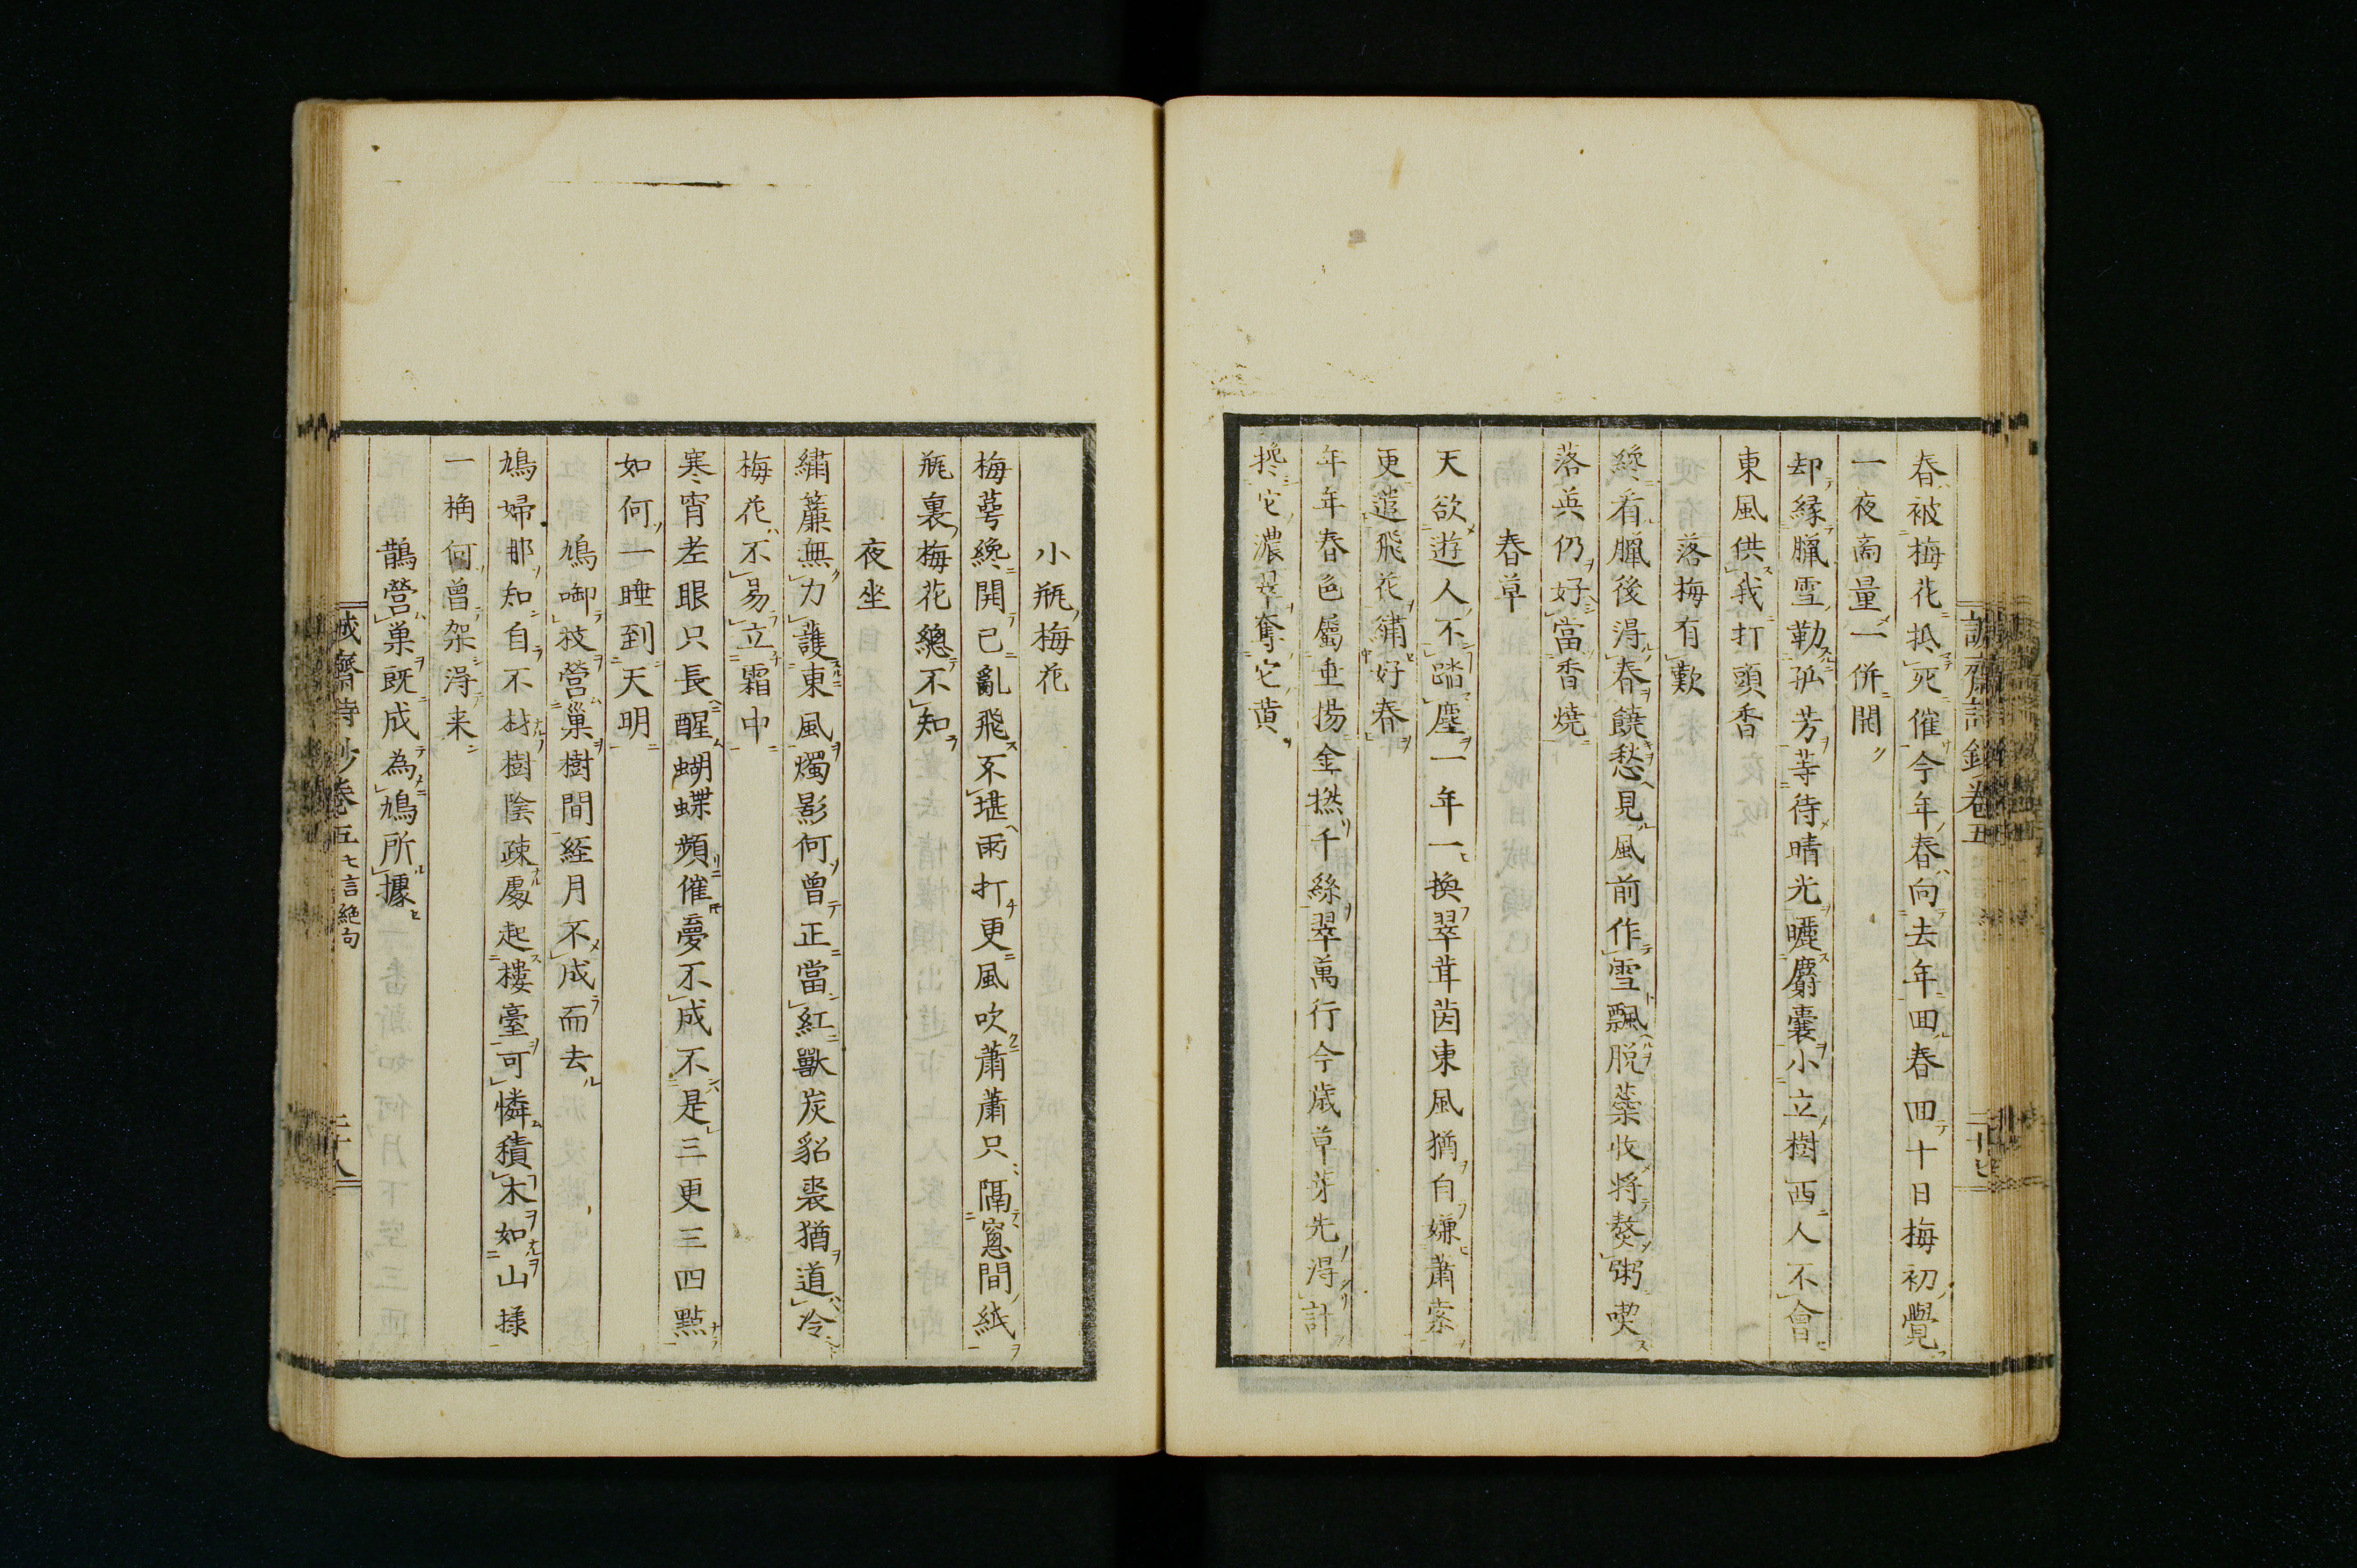 春被梅花抵死催今年春向去年回春回十日梅初覺
一夜商量一併開
却緣臘雪勒孤芳等待晴光曬麝囊小立樹西人不會
東風供我打頭香
落梅有歎
纔看臘後得春饒愁見風前作雪飄脫蘂收將熬粥喫
落英仍好當香燒
春草
天欲遊人不踏塵一年一換翠茸茵東風猶自嫌蕭索
更遣飛花繡好春
年年春色屬垂楊金撚千絲翠萬行今歲草芽先得計
攙它濃翠奪它黄
小瓶梅花
梅萼纔開已亂飛不堪雨打更風吹蕭蕭只隔窻間紙
瓶裏梅花總不知
夜坐
繡簾無力護東風燭影何曾正當紅獸炭貂裘猶道冷
梅花不易立霜中
寒宵老眼只長醒蝴蝶頻催夢不成不是三更三四點
如何一睡到天明
鳩啣枝營巢樹間經月不成而去
鳩婦那知自不材樹陰疎處起樓臺可憐積木如山様
一桷何曾架得来
鵲營巢既成為鳩所據
誠齋詩鈔卷五
七言絶句
二十八